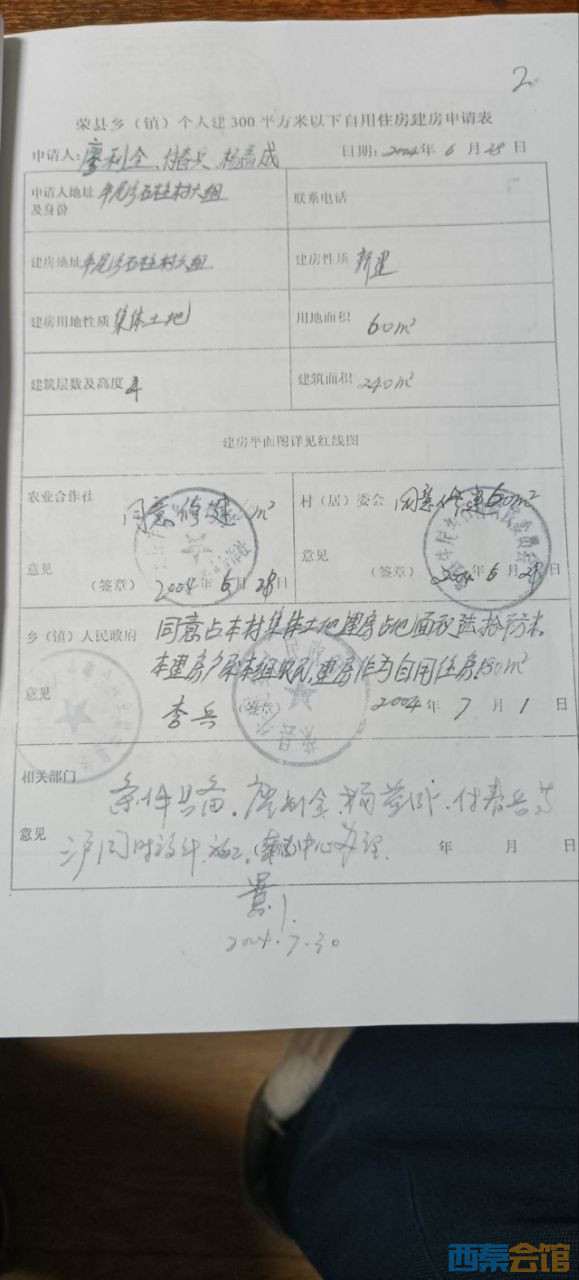 2
荣县乡（镇）个人建300平方米以下自用住房建房申请表
申请人：廖利全、付春兵、杨
日期：2004年6月28日
申请人地址及身份 石柱村六组
联系电话
建房地址 石柱村六组
建房性质 新建
建房用地性质 集体土地
用地面积 60m²
建筑层数及高度 4
建筑面积 240m²
建房平面图详见红线图
农业合作社 同意修建 m²
意见
（签章） 2004年6月28日
村（居）委会 同意修建60m²
意见
（签章） 2004年6月28日
乡（镇）人民政府 同意占本村集体土地建房占地面积陆拾平方米。
本建房户系本组农民，建房作为自用住房
意见 李兵 （签章） 2004年7月1日
相关部门 条件具备。廖利全、杨 、付春兵等
意见 三户同时设计、施工。 中心办理. 年 月 日
2004.7.30
西秦会馆